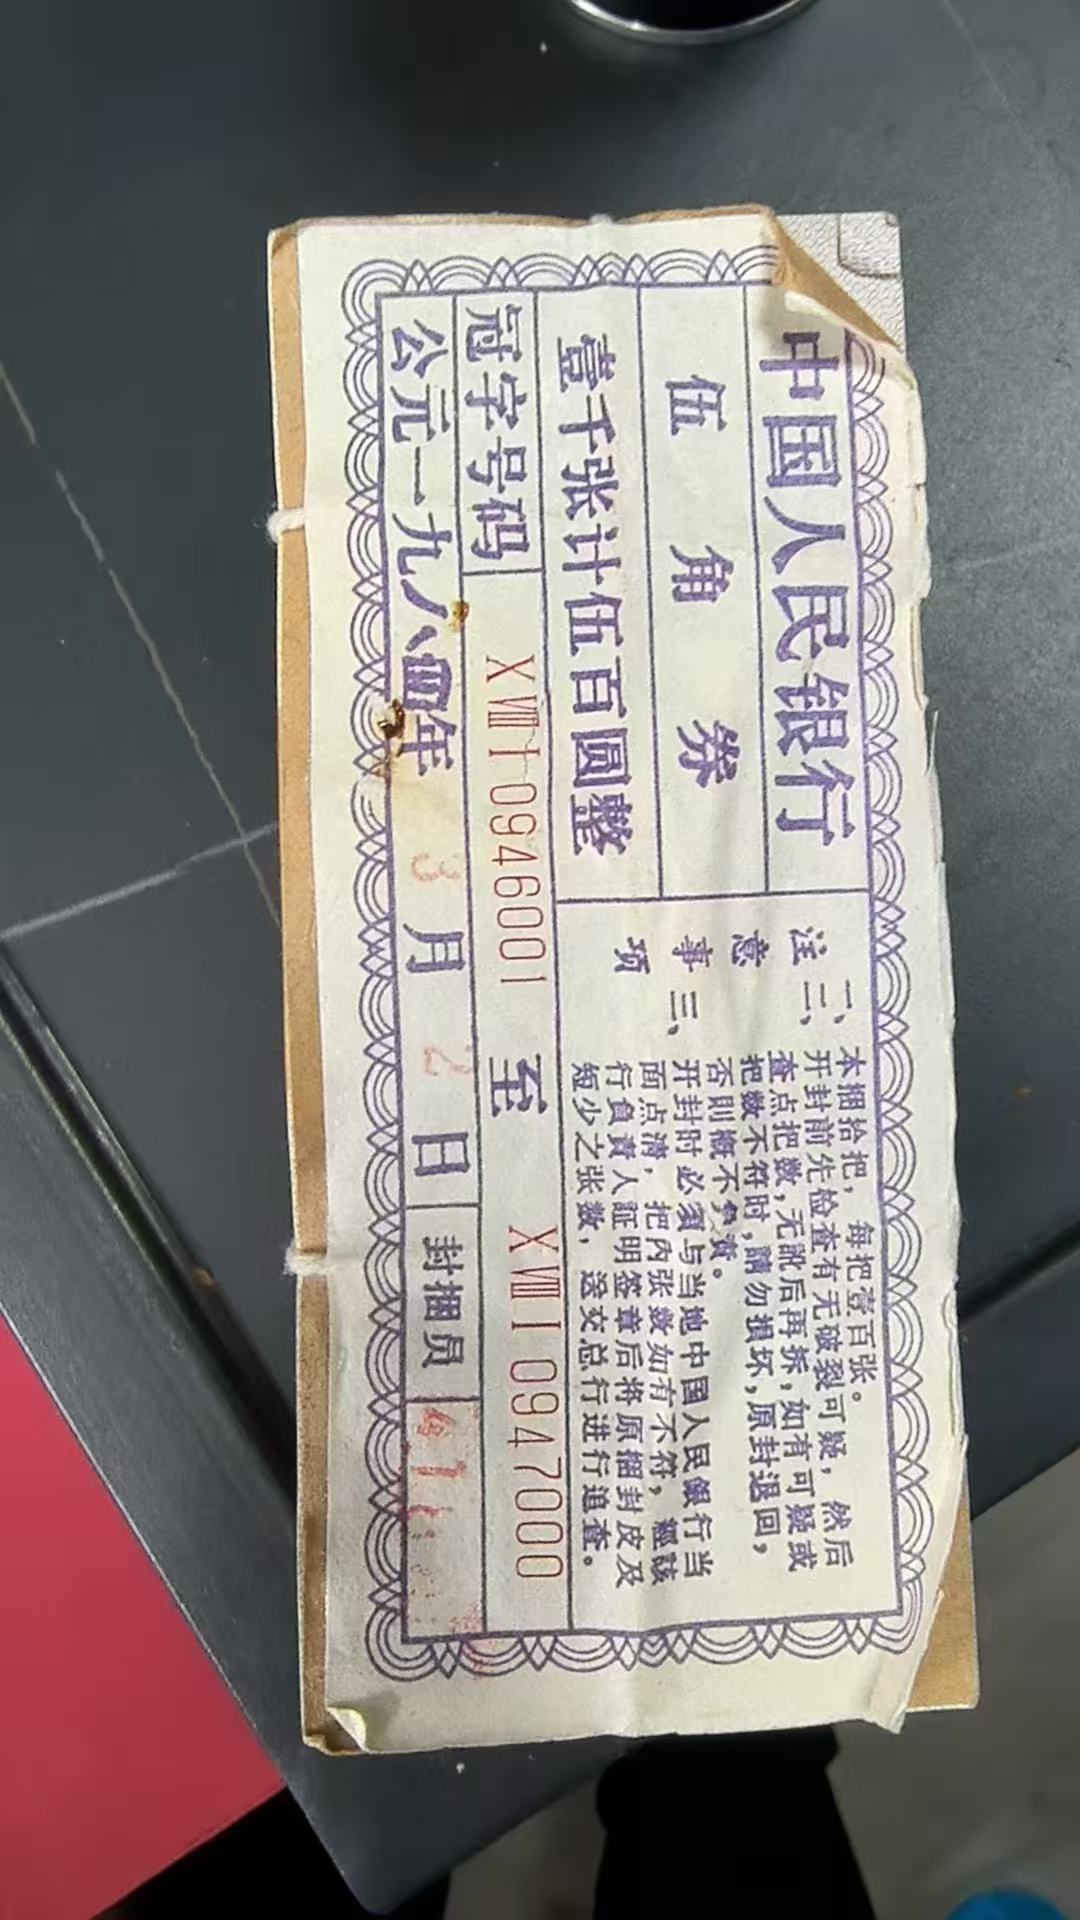 中国人民银行
伍角券
壹千张计伍百圆整
冠字号码
XⅧI0946001 至 XⅧI0947000
公元一九八四年 3月 2日 封捆员
注意事项
一、本捆拾把，每把壹百张。
二、开封前先检查有无破裂可疑，然后
查点把数，无訛后再拆，如有可疑或
把数不符时，請勿損坏，原封退回，
否則概不負責。
三、开封时必须与当地中国人民銀行当
面点清，把内张数如有不符，經該
行負責人証明签章后将原捆封皮及
短少之张数，送交总行进行追查。